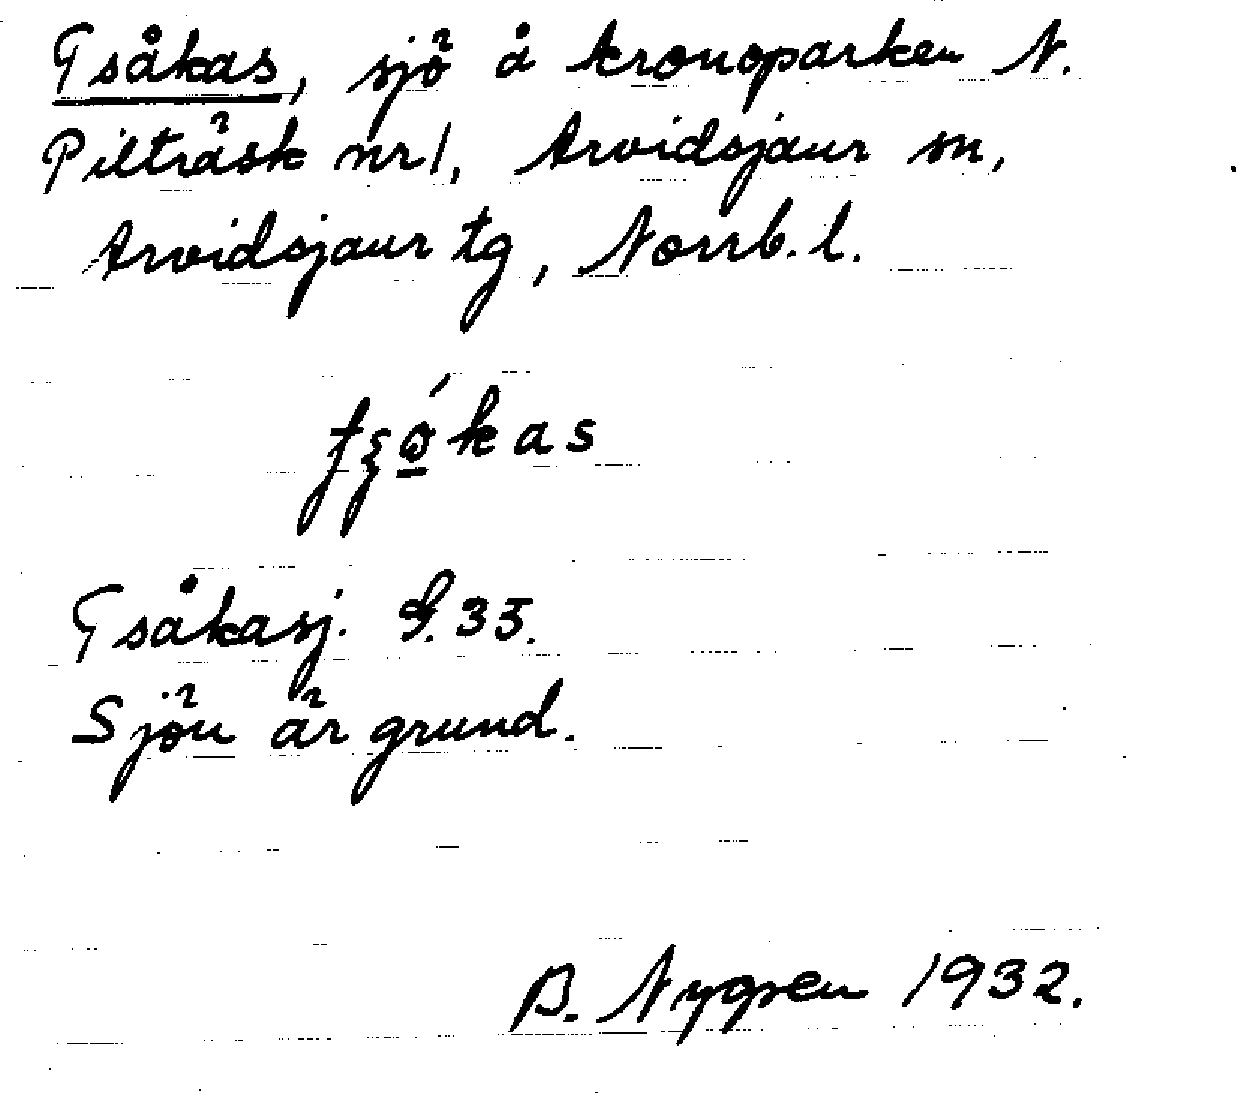 Tsåkas, sjö å kronoparken N.
Pilträsk nr 1, Arvidsjaur sn,
Arvidsjaur tg, Norrb. l.
Tsåkasj. G. 35.
Sjön är grund.
B. Nygren 1932.